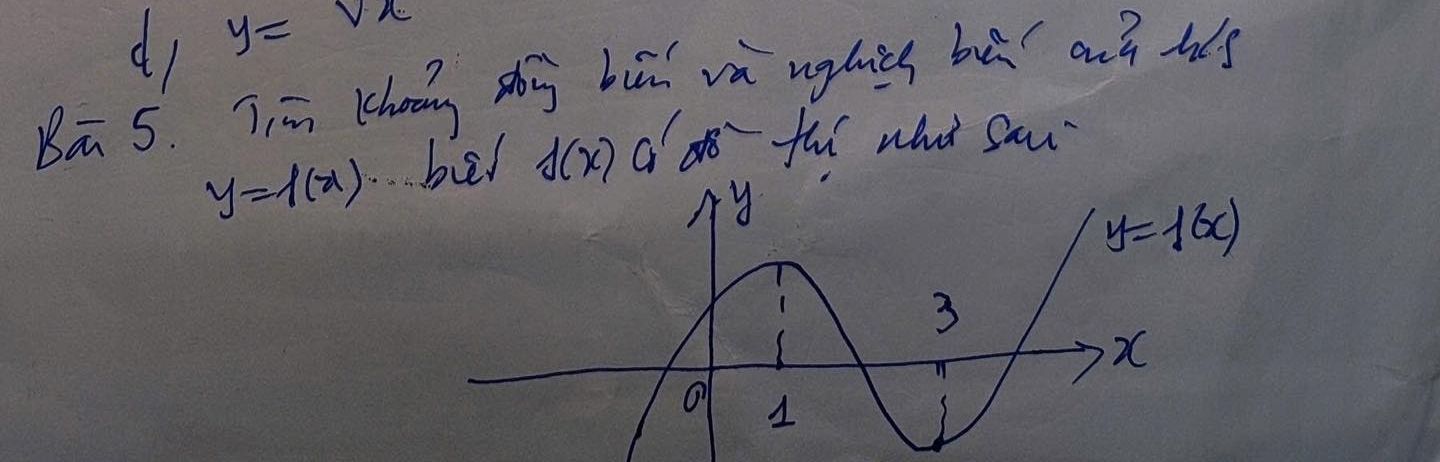 d, y = √x
Bài 5. Tìm khoảng đồng biến và nghịch biến của h/s
y=f(x) biết f(x) có đồ thị như sau
y
y=f(x)
3
x
O
1